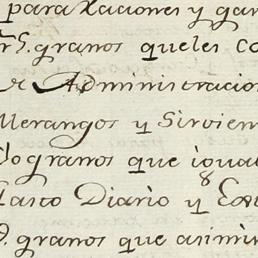 para raciones y gan
rs. granos queles co
Administracion
Merangos y Sirvien
do granos que igual
Gasto Diario y Ex
granos que asimis